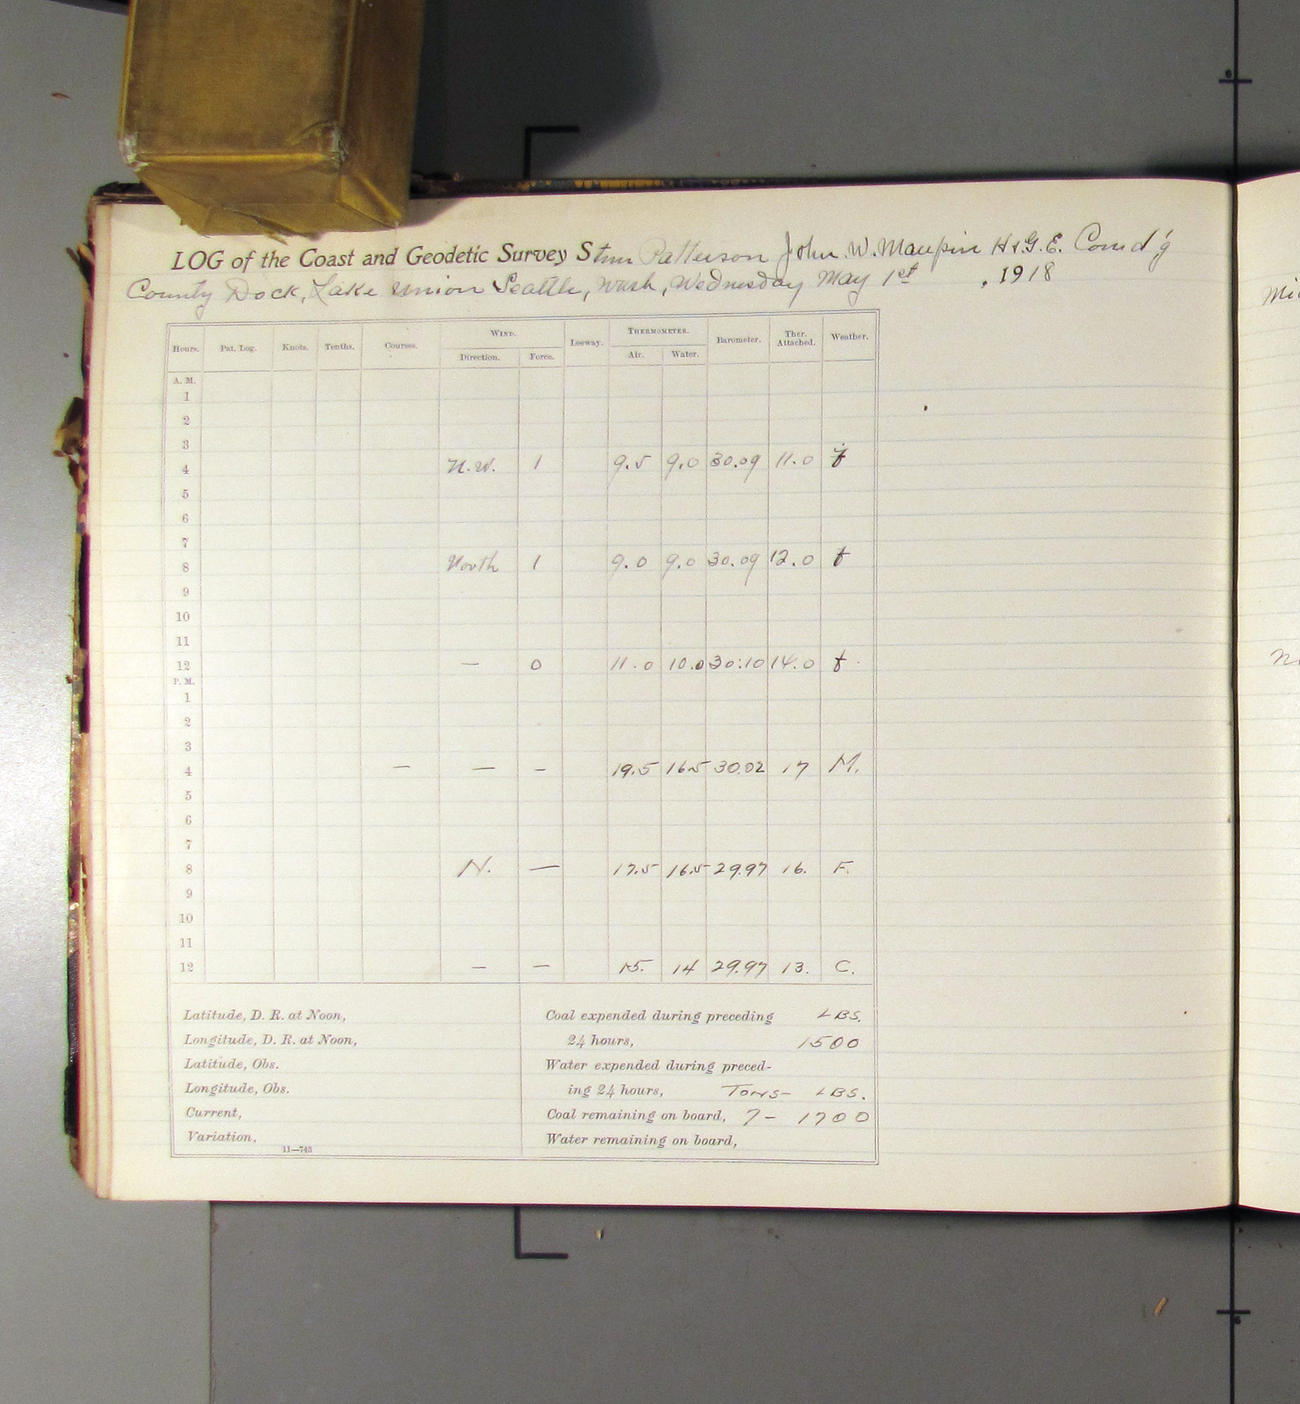 LOG of the Coast and Geodetic Survey Stmr Patterson John. W. Maupin H & G. E. Comd'g
County Dock, Lake Union Seattle, Wash, Wednesday May 1st , 1918
Hours. Pat. Log. Knots. Tenths. Courses. Wind. Direction. Force. Leeway. Thermometer. Air. Water. Barometer. Ther. Attached. Weather.
A. M.
1
2
3
4 N.W. 1 9.5 9.0 30.09 11.0 f
5
6
7
8 North 1 9.0 9.0 30.09 12.0 f
9
10
11
12 — 0 11.0 10.0 30.10 14.0 f
P. M.
1
2
3
4 — — – 19.5 16.5 30.02 17 M.
5
6
7
8 N. — 17.5 16.5 29.97 16. F.
9
10
11
12 — — 15. 14 29.97 13. C.
Latitude, D. R. at Noon, Coal expended during preceding LBS.
Longitude, D. R. at Noon, 24 hours, 1500
Latitude, Obs. Water expended during preced-
Longitude, Obs. ing 24 hours, Tons– LBS.
Current, Coal remaining on board, 7 – 1700
Variation, Water remaining on board,
11—743